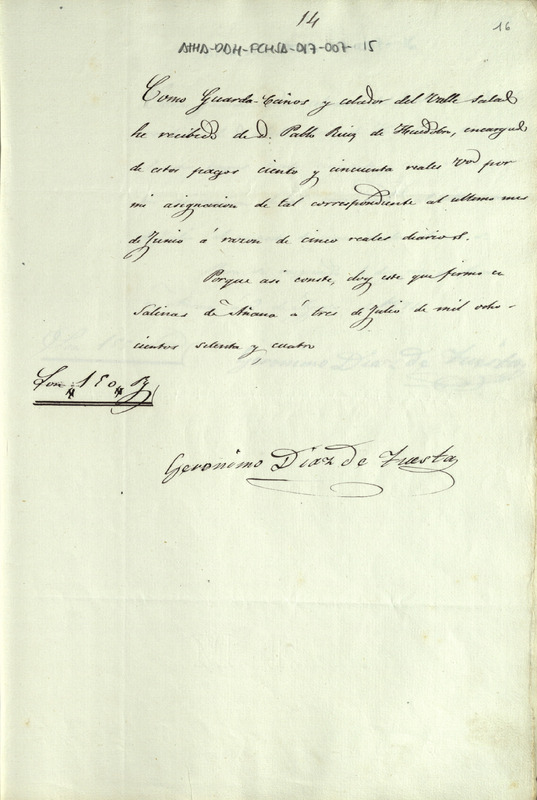 14
16
ATHA-DAH-FCHSA-017-007-15
Como Guarda-Caños y celador del Valle Salado
he recibido de D. Pablo Ruiz de encargado
de estos pagos ciento y cincuenta reales Von por
mi asignacion de tal correspondiente al ultimo mes
de Junio á razon de cinco reales diarios.
Porque asi conste, doy este que firmo en
Salinas de Añana á tres de Julio de mil ocho-
cientos setenta y cuatro
Son 150 R
Geronimo Diaz de Tuesta